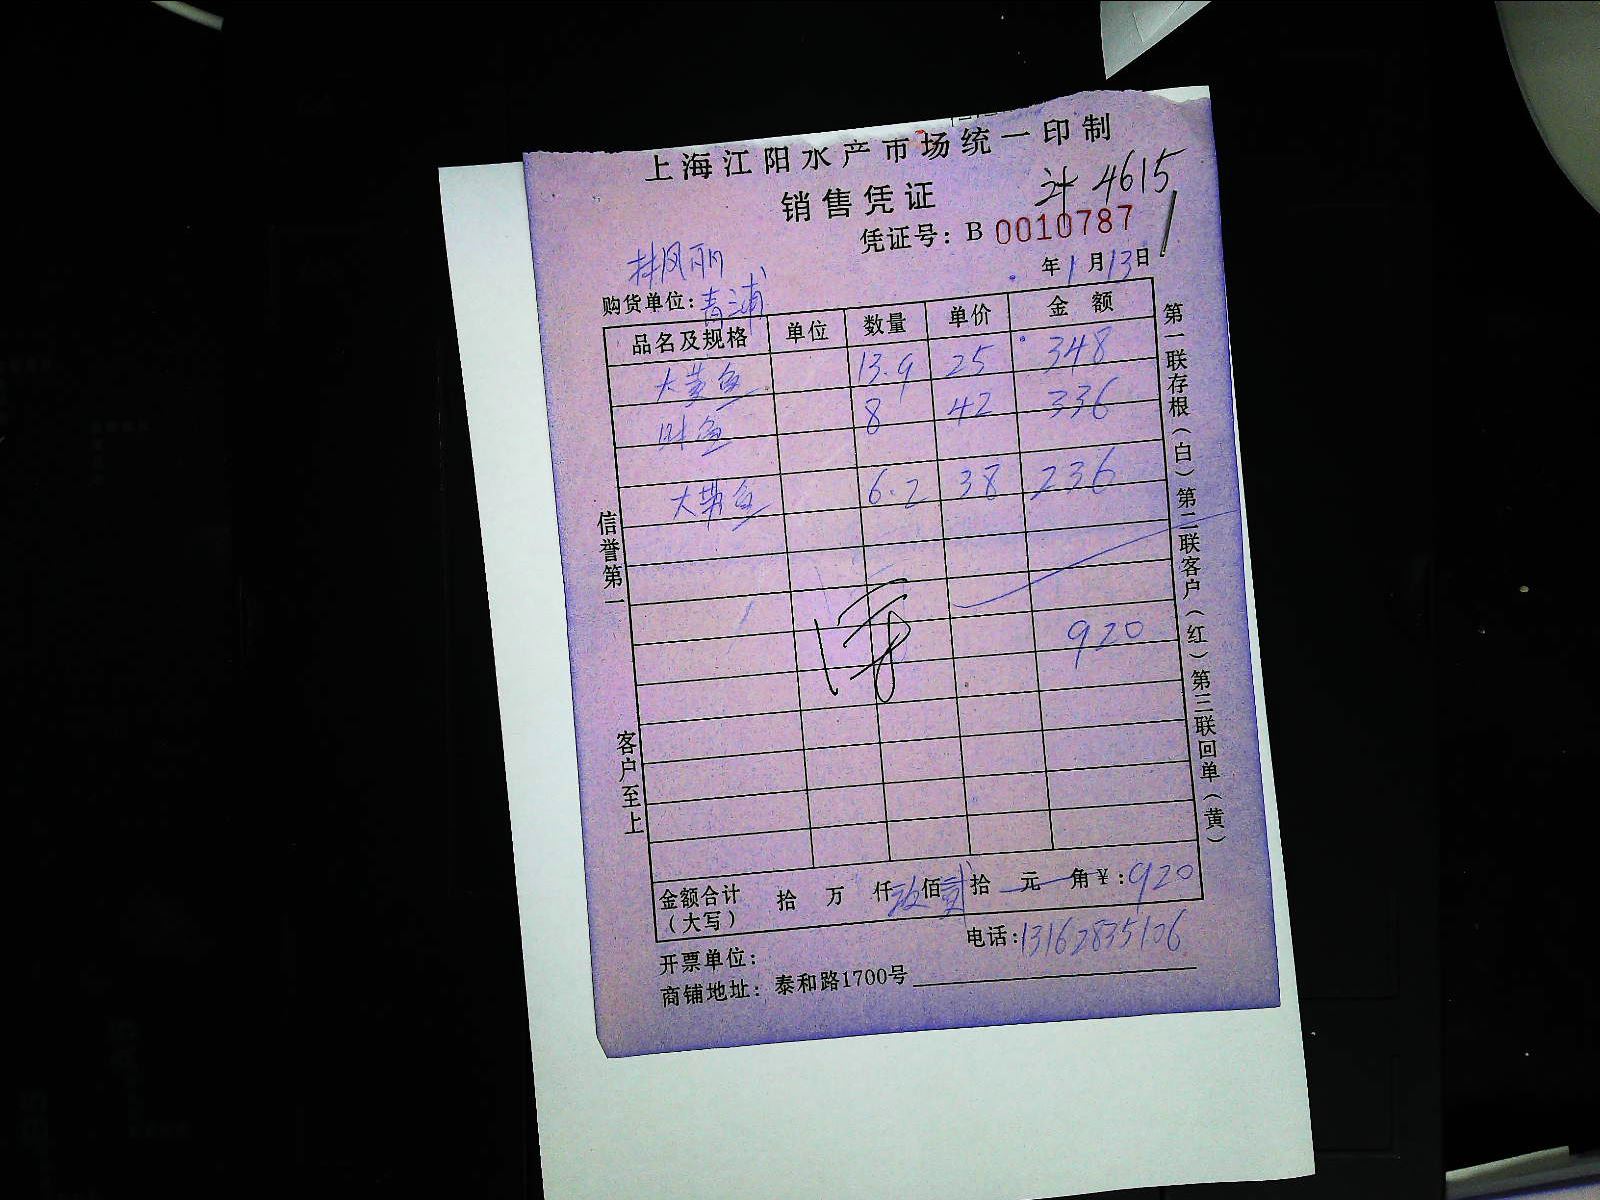 上海江阳水产市场统一印制
销售凭证
计 4615
凭证号：B 0010787
年1月13日
林凤丽
购货单位：青浦
品名及规格 单位 数量 单价 金额
大黄鱼 13.9 25 348
鱼 8 42 336
大带鱼 6.2 38 236
920
信誉第一
客户至上
第一联存根（白）第二联客户（红）第三联回单（黄）
金额合计（大写） 拾 万 仟 玖佰贰拾 元 角¥：920
电话：13162835106
开票单位：
商铺地址：泰和路1700号